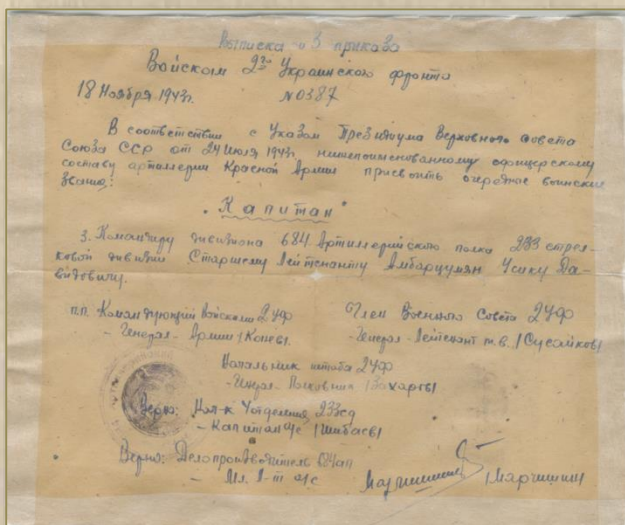 Выписка из приказа
Войскам 2го Украинского фронта
18 Ноября 1943г. N0387
В соответствии с Указом Президиума Верховного Совета
Союза ССР от 24 Июля 1943г. нижепоименованному офицерскому
составу артиллерии Красной Армии присвоить очередное воинское
звание:
"Капитан"
3. Командиру дивизиона 684 Артиллерийского полка 233 стрел-
ковой дивизии Старшему Лейтенанту Амбарцумян Усику Да-
видовичу.
п.п. Командующий Войсками 2УФ Член Военного Совета 2УФ
- Генерал-Армии /Конев/ -Генерал-Лейтенант т.в. /Сусайков/
Начальник штаба 2УФ
-Генерал-Полковник /Захаров/
Верно: Нач-к 4 отделения 233сд
- Капитан а/с /Шибаев/
Верно: Делопроизводитель 684ап
- Мл. Л-т а/с /Марчишин/